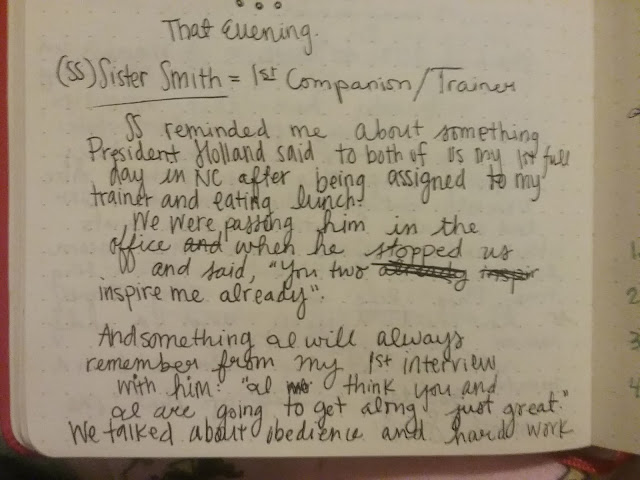 That Evening.
(SS) Sister Smith = 1st Companion/Trainer
SS reminded me about something
President Holland said to both of us my 1st full
day in NC after being assigned to my
trainer and eating lunch.
We were passing him in the
office and when he stopped us
and said, "You two already inspir
inspire me already".
And something I will always
remember from my 1st interview
with him: "I think you and
I are going to get along just great."
We talked about obedience and hard work
1.
2
3
4